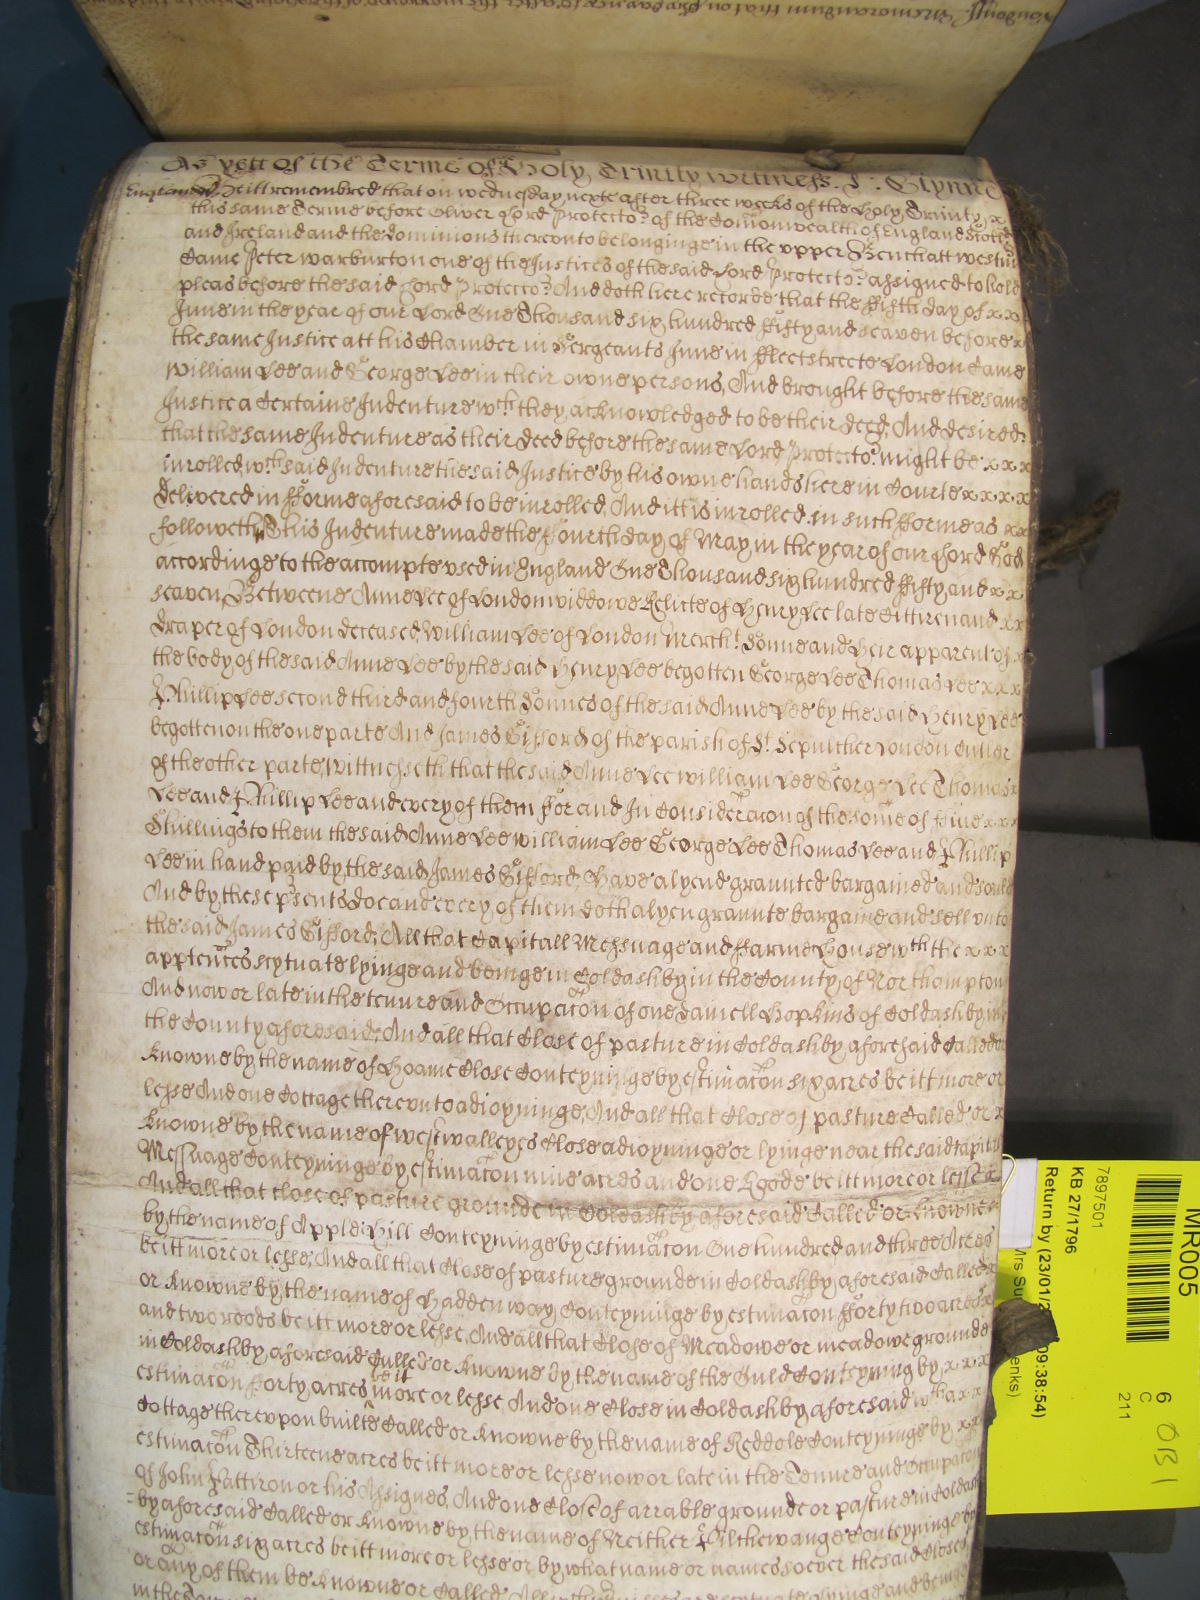 As yett of the Terme of Holy Trinity witness J: Glynne
England Be itt remembred that on wednesday next after three weeks of the Holy Trinity x
this same Terme before Oliver Lord Protecto:r of the Com̄onwealth of England Scotl:
and Ireland and the dominions thereunto belonginge in the upper Bench att westm
Came Peter warburton one of the Justices of the said Lord Protecto:r assigned to hold
pleas before the said Lord Protecto:r And doth here recorde that the ffifth day of x x
June in the year of our Lord One Thousand six hundred ffifty and seaven before x
the same Justice att his Chamber in Sergeants Inne in ffleetstreete London Came
William Lee and George Lee in their owne persons, And brought before the same
Justice a Certaine Indenture w:ch they acknowledged to be their deed, And desired
that the same Indenture as their deed before the same Lord Protecto:r might be x x x
inrolled w:ch said Indenture the said Justice by his owne hands here in Courte x x x x
delivered in fforme aforesaid to be inrolled, And itt is inrolled in such fforme as x x
followeth This Indenture made the ffourth day of May in the year of our Lord God
accordinge to the accompte used in England One Thousand six hundred ffifty and x x
seaven Betweene Anne Lee of London widdowe Relicte of Henry Lee late Cittizen and x x
draper of London deceased, William Lee of London Merch:t Sonne and Heir apparent of x
the body of the said Anne Lee by the said Henry Lee begotten George Lee Thomas Lee x x x
Phillip Lee second third and fourth Sonnes of the said Anne Lee by the said Henry Lee
begotten on the one parte And James Gifford of the parish of S:t Sepulcher London
of the other parte, wittnesseth that the said Anne Lee william Lee George Lee Thomas x
Lee and Phillip Lee and every of them ffor and In Consideracon of the som̄e of ffive x x x
Shillings to them the said Anne Lee william Lee George Lee Thomas Lee and Phillip
Lee in hand paid by the said James Gifford, Have alyend graunted bargained and sould
And by these p̄sents doe and every of them doth alyen graunte bargaine and sell unto
the said James Gifford, All that Capitall Messuage and ffarme House w:th the x x x
appten̄ces scytuate lyinge and beinge in Coldashby in the County of Northampton
And now or late in the tenure and Occupacōn of one daniell Hopkins of Coldashby in
the County aforesaid, And all that Close of pasture in Coldashby aforesaid Called or
knowne by the name of Hoame Close Conteyninge by estimacōn six acres be itt more or
lesse And one Cottage thereunto adioyninge, And all that Close of pasture Called or x
knowne by the name of westwalleyes Close adioyninge or lyinge near the said Capitall
Messuage Conteyninge by estimacōn nine acres and one Roode be itt more or lesse x
And all that Close of pasture grounde in Coldashby aforesaid Called or knowne
by the name of Apple Hill Conteyninge by estimacōn One hundred and three Acres
be itt more or lesse, And all that Close of pasture grounde in Coldashby aforesaid Called
or knowne by the name of Hadden way Conteyninge by estimacōn fforty two acres
and two roods be itt more or lesse, And all that Close of Meadowe or meadowe grounde
in Coldashby aforesaid Called or knowne by the name of the Conteyning by x x x
estimacōn fforty acres be it more or lesse And one Close in Coldashby aforesaid w:th a x x
Cottage thereupon builte Called or knowne by the name of Reddole Conteyninge by x x
estimacōn Thirteene acres be itt more or lesse now or late in the Tenure and Occupacōn
of John Pattison or his Assignes, And one Close of arrable grounde or pasture in Coldash=
=by aforesaid Called or knowne by the name of Neither Conteyninge by
estimacōn six acres be itt more or lesse or by what name or names soever the said Closes
or any of them be knowne or Called, All scytuate lyinge and beinge
in the
MR005
7897501
KB 27/1796
Return by (23/01/2 09:38:54)
6
C
211